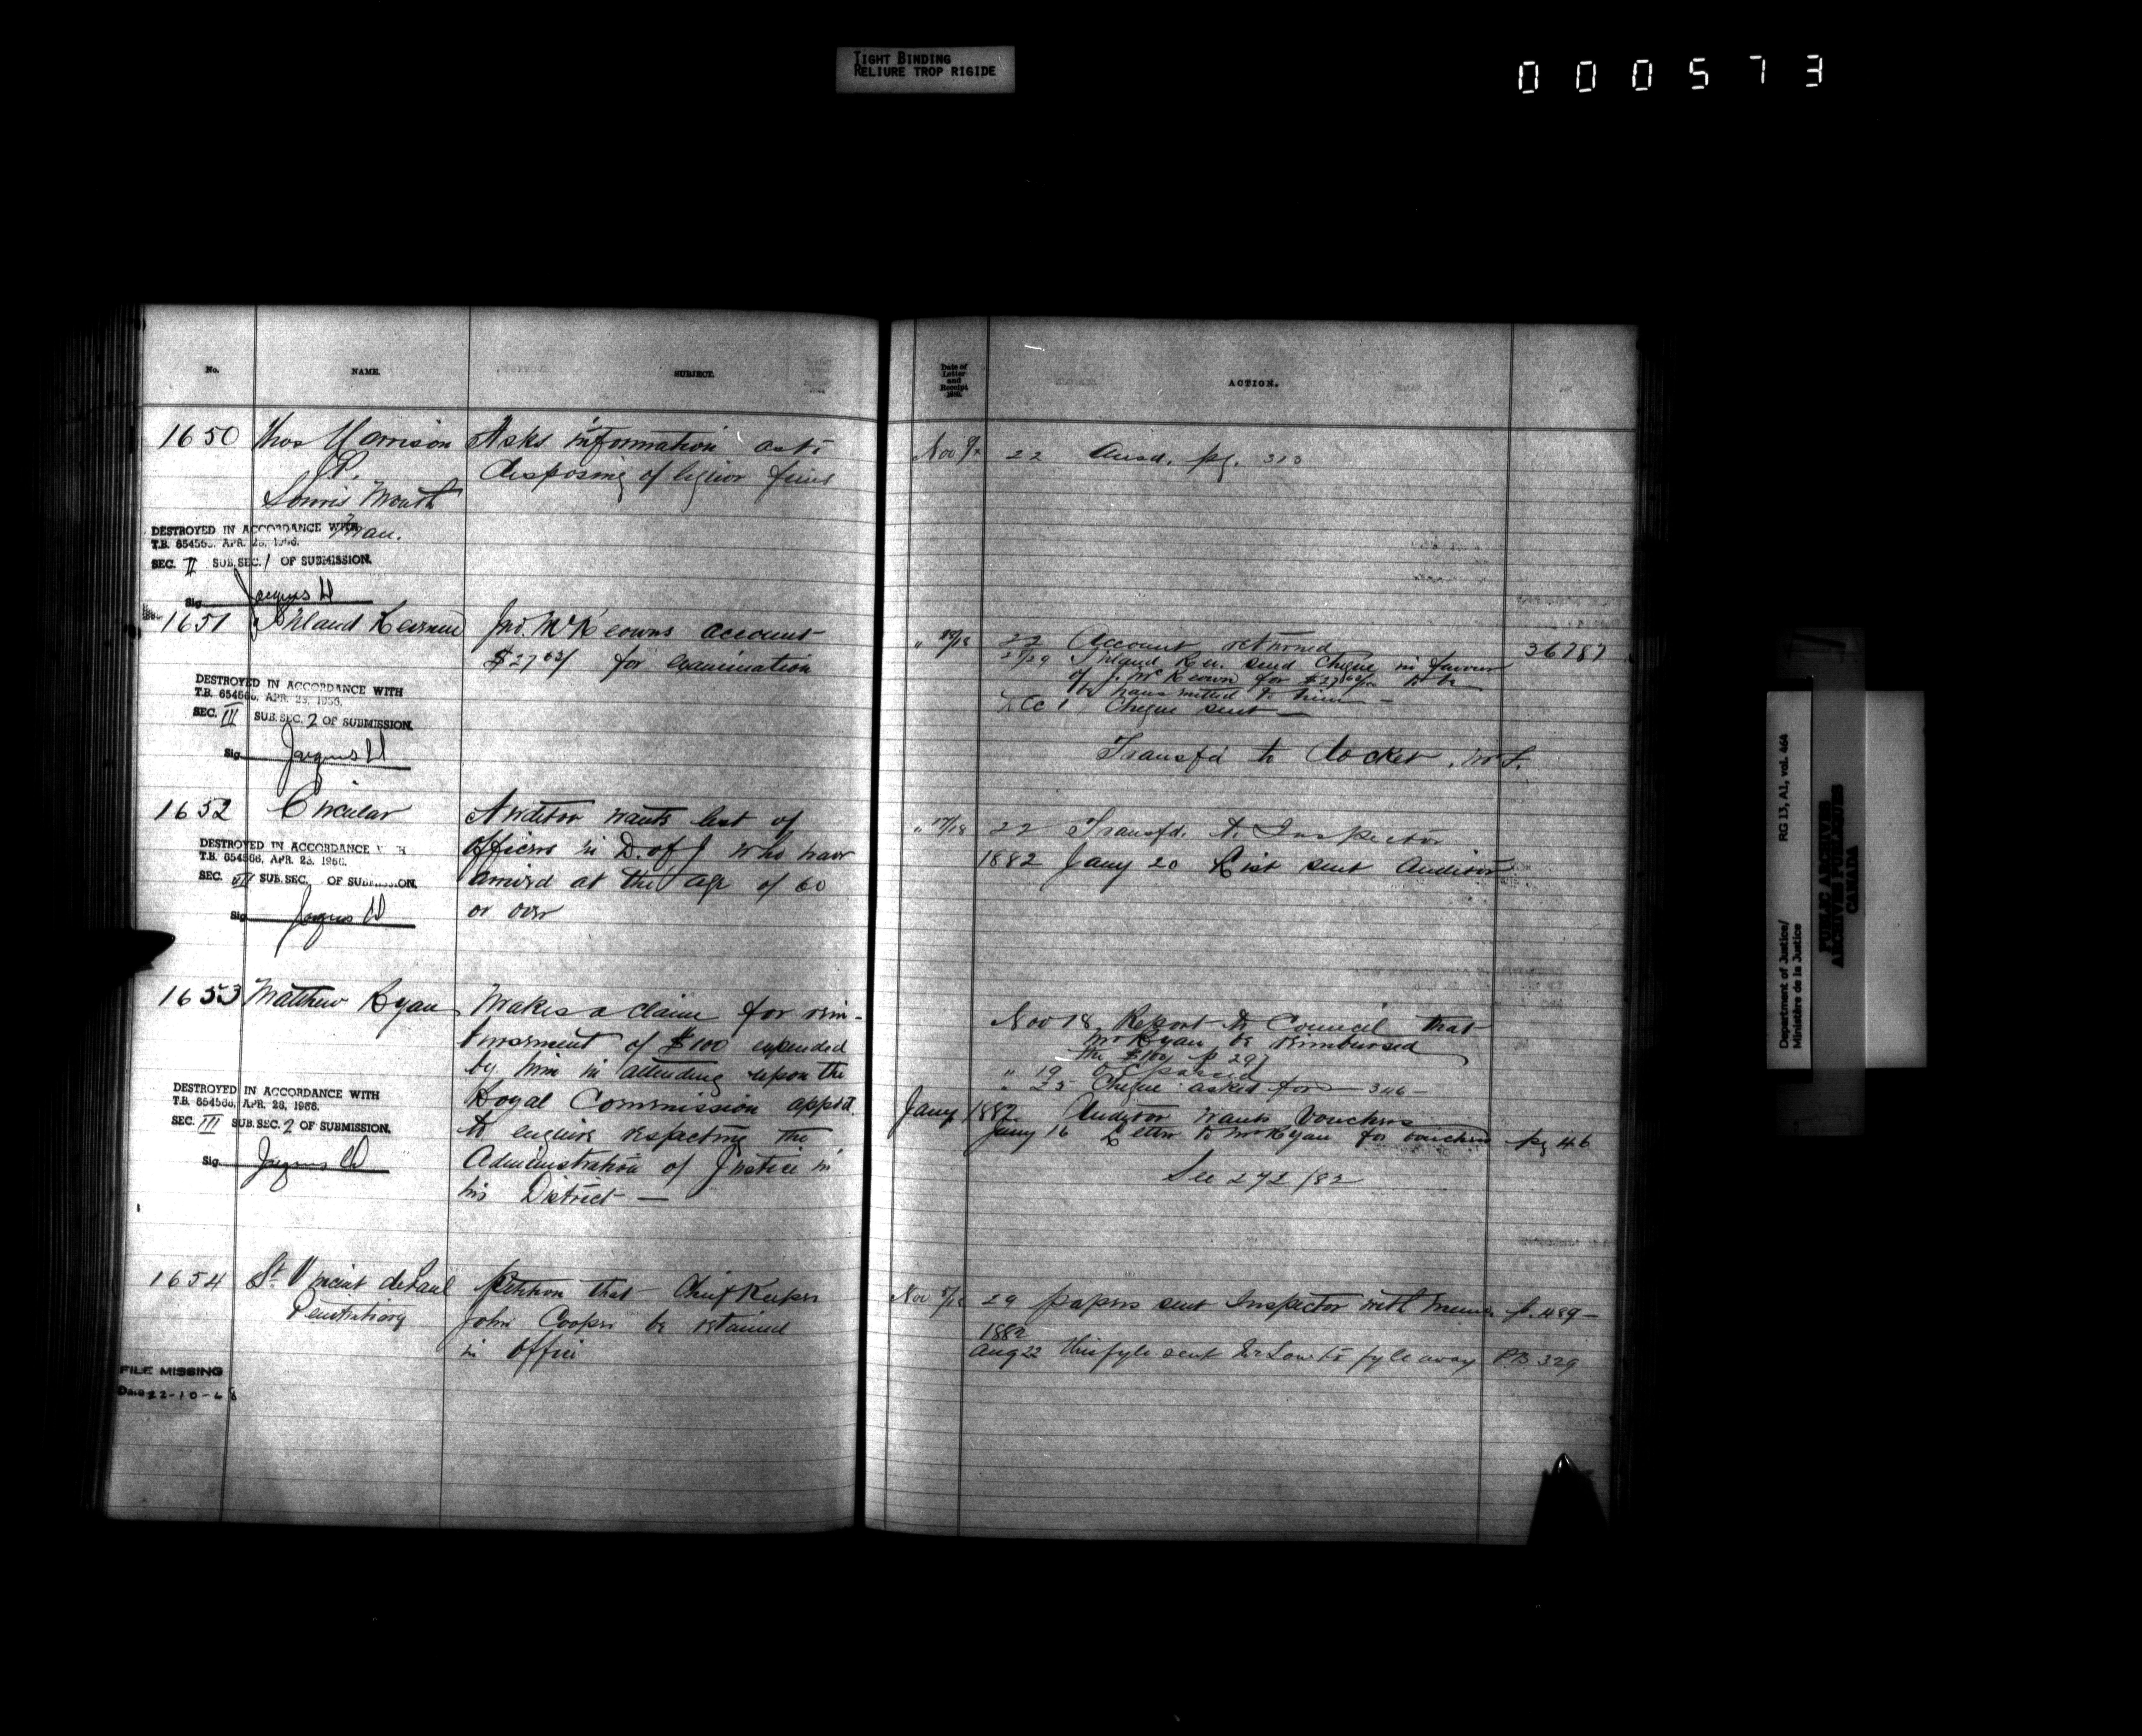 TIGHT BINDING
RELIURE TROP RIGIDE
000573
No.
NAME.
SUBJECT.
1650
Thos Harrison
J.P.
Souris Mouth
Man.
Asks information as to
disposing of liquor fines
DESTROYED IN ACCORDANCE WITH
T.B. 654566, APR. 28, 1966.
SEC. II SUB.SEC. 1 OF SUBMISSION.
Sig.
1651
Inland Revenue
Jno. McKeowns account
$27 63/ for examination
DESTROYED IN ACCORDANCE WITH
T.B. 654566, APR. 28, 1966.
SEC. III SUB.SEC. 2 OF SUBMISSION.
Sig.
1652
Circular
Auditor wants list of
officers in D. of J who have
arrived at the age of 60
or over
DESTROYED IN ACCORDANCE WITH
T.B. 654566, APR. 28, 1966.
SEC. VII SUB.SEC. OF SUBMISSION.
Sig.
1653
Matthew Ryan
Makes a claim for reim-
bursement of $100 expended
by him in attending upon the
Royal Commission appted.
to enquire respecting the
Administration of Justice in
his District —
DESTROYED IN ACCORDANCE WITH
T.B. 654566, APR. 28, 1966.
SEC. III SUB.SEC. 2 OF SUBMISSION.
Sig.
1654
St. Vincent de Paul
Penitentiary
Petition that Chief Keeper
John Cooper be retained
in office
FILE MISSING
Date 22-10-68
Date of
Letter
and
Receipt
188
ACTION.
Nov
22 Ansd. pg. 313
" 18/18 22 Account returned 36787
Inland Rev. send Cheque in favour
of J. McKeown for $27 63/ to be
transmitted to him —
Dec 1 Cheque sent —
Transfd to docket
" 17/18 22 Transfd. to Inspector
1882 Jany 20 List sent Auditor
Nov 18. Report to Council that
Mr Ryan be reimbursed
the $100/ p 297
" 19 O C passed
" 25 Cheque asked for — 346 —
Jany 1882 Auditor wants Vouchers
Jany 16 Letter to Mr Ryan for vouchers pg 46
See 272/82
Nov 29 papers sent Inspector with memo. p. 489 —
1882
Aug 22 this fyle sent Mr Low to fyle away PB 329
Department of Justice/
Ministère de la Justice
RG 13, A1, vol. 464
PUBLIC ARCHIVES
ARCHIVES PUBLIQUES
CANADA